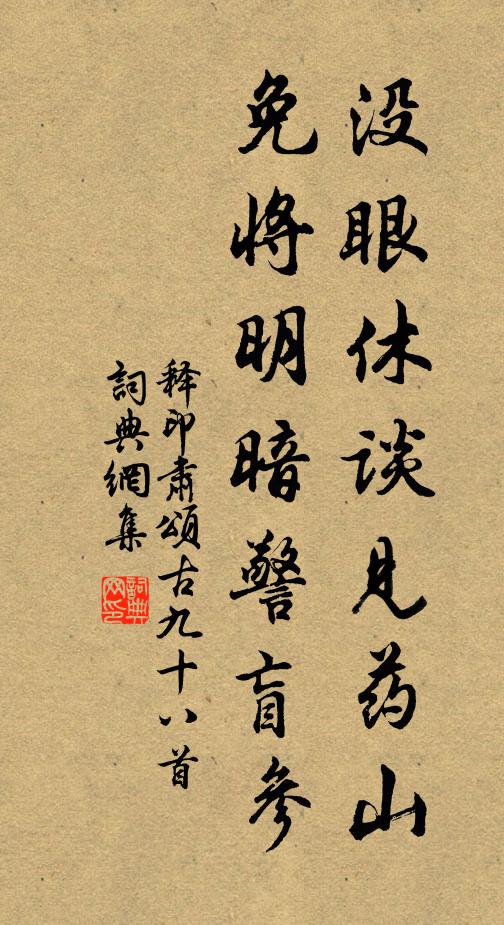 没眼休谈见药山
免将明暗警盲参
释印肃颂古九十八首
詞典網集
詞典網印